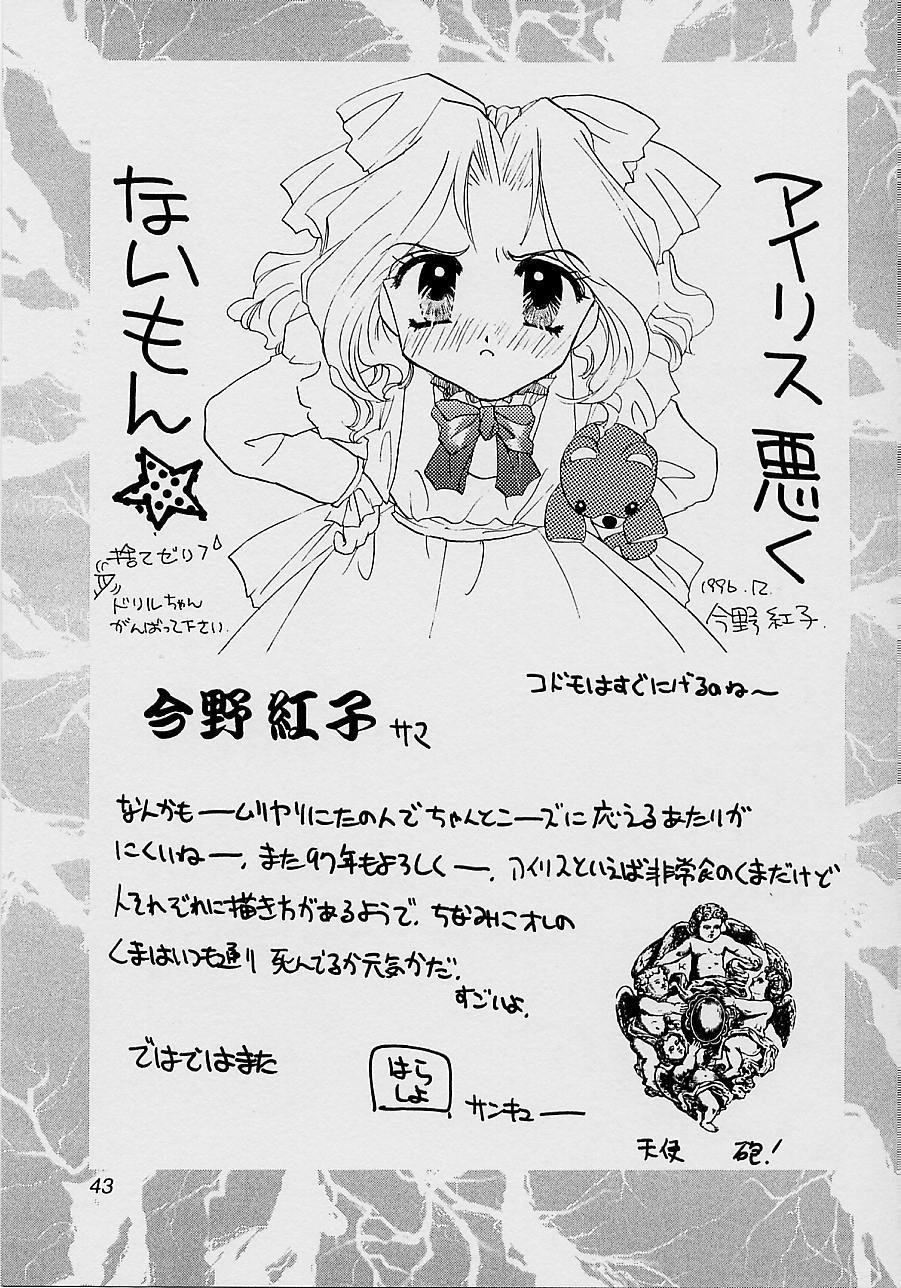 アイリス悪く
ないもん☆
捨てゼリフ
ドリルちゃん
がんばって下さい.
1996.12.
今野紅子.
コドモはすぐにげるのね〜
今野紅子サマ
なんかもームリヤリにたのんでちゃんとニーズに応えるあたりが
にくいねー, また97年もよろしくー. アイリスといえば非常食のくまだけど
人それぞれに描き方があるようで. ちなみにオレの
くまはいつも通り 死んでるか元気かだ.
すごいよ.
ではではまた
はら
しよ
サンキューー
天使 砲!
43